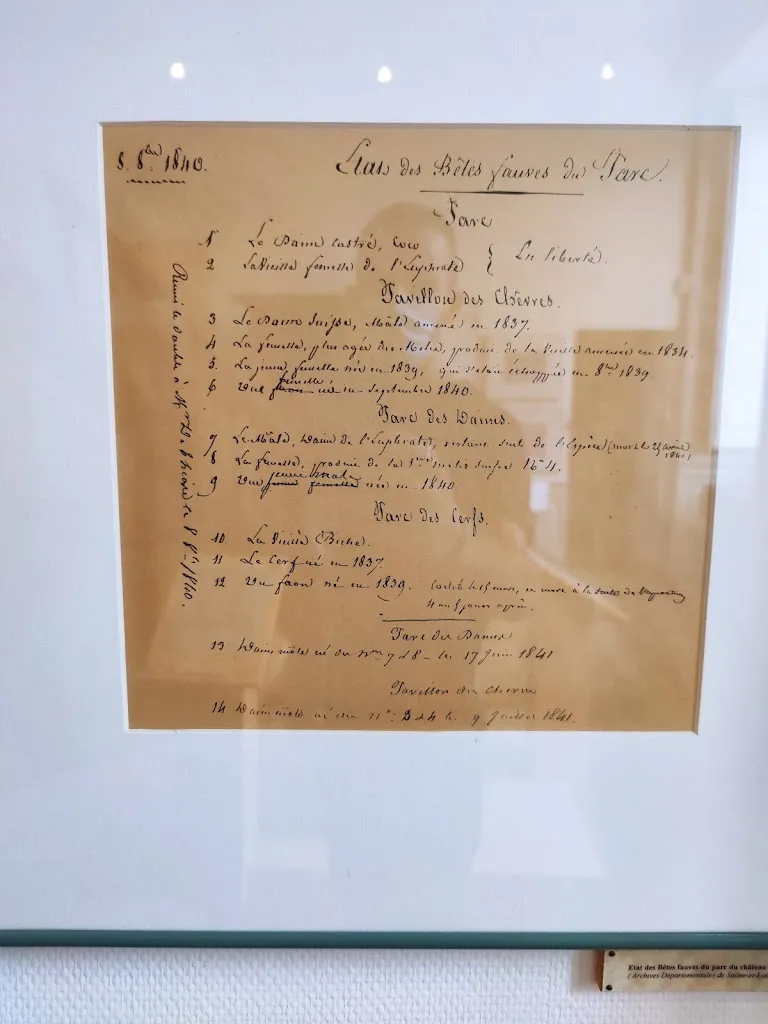 8. 8bre 1840.
Etat des Bêtes fauves du Parc.
Parc
1 Le Daim castré, Coco
2 La Vieille femelle de l'Euphrate } En liberté.
Pavillon des Chèvres.
3 Le Daim Suisse, Mâle amené en 1837.
4 La femelle, plus agée des Métis, produit de la Vieille amenée en 1834.
5. La jeune femelle née en 1839, qui s'était échappée en 8bre 1839.
6 Une femelle faon né en Septembre 1840.
Parc des Daims.
7 Le Mâle, Daim de l'Euphrate, restant seul de l'Espèce (mort le 25 avril 1841)
8 La femelle, produit de la 1ere métis Suisse No 4.
9 Une jeune femelle née en 1840
jeune mâle
Parc des Cerfs.
10. La Vieille Biche.
11 Le Cerf né en 1837.
12 Un faon né en 1839. Castré le 15 mars, en
4 ou 5 jours après.
Parc des Daims
13 Daim mâle né du Nos 7 & 8 - le 17 Juin 1841
Pavillon des Chèvres
14 Daim mâle né des nos. 3 & 4 le 9 Juillet 1841.
Remis le double à Mr D. le 8 8bre 1840.
Etat des Bêtes fauves du parc du château
(Archives Départementales de Saône-et-Loi